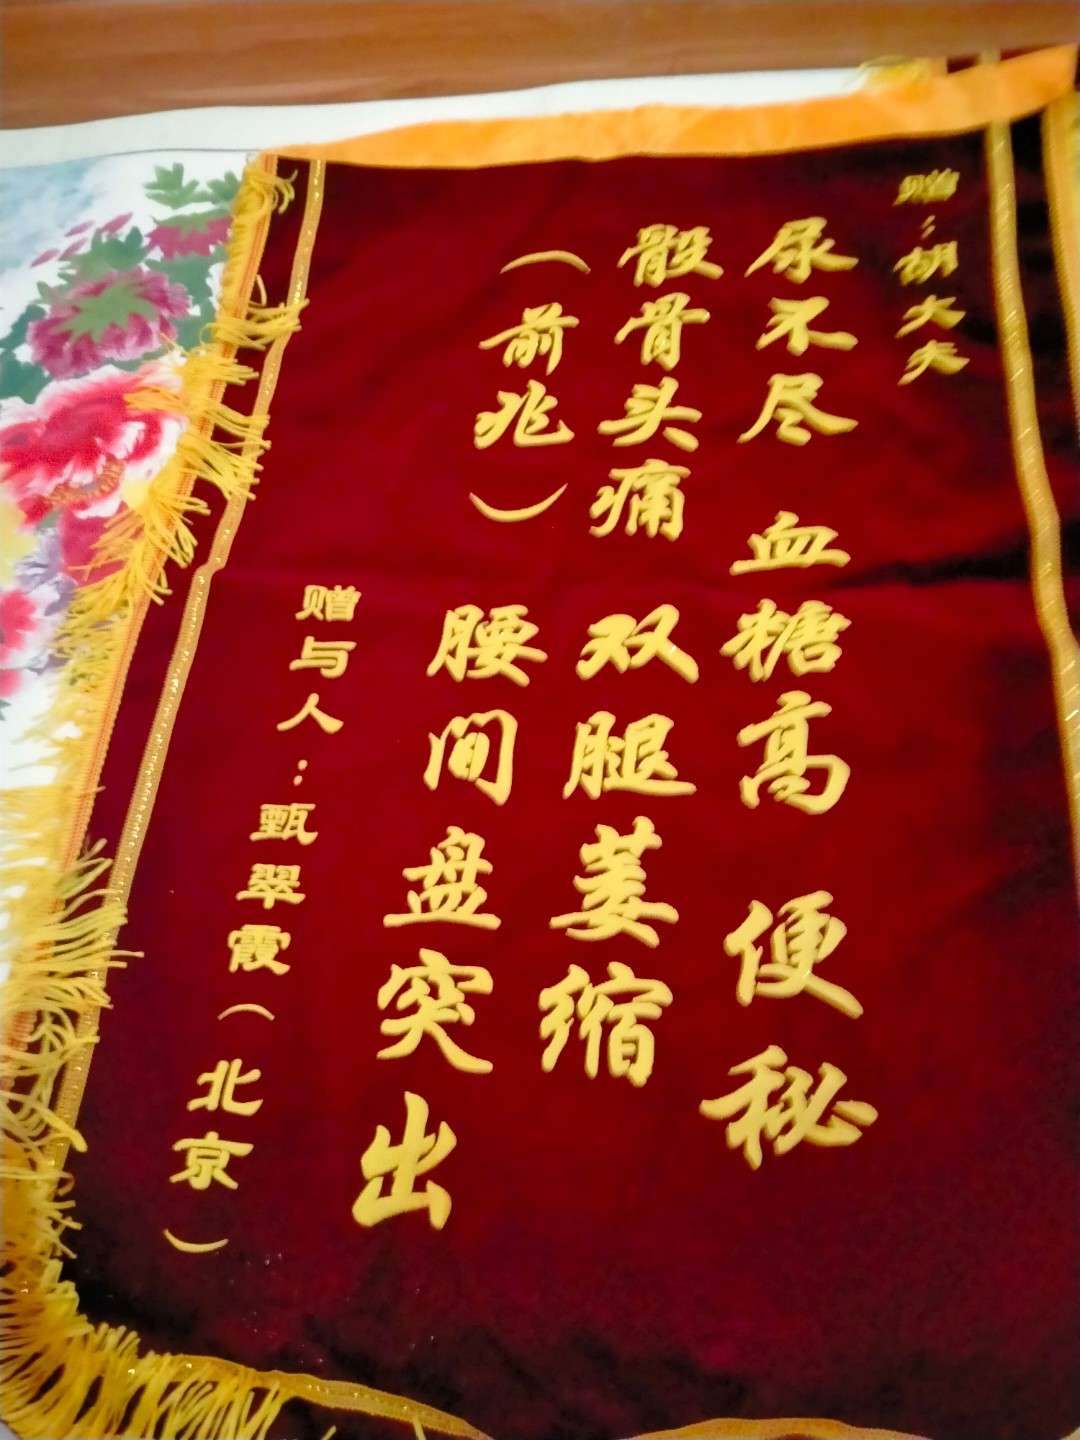 赠：胡大夫
尿不尽 血糖高 便秘
骰骨头痛 双腿萎缩
（前兆） 腰间盘突出
赠与人：甄翠霞（北京）